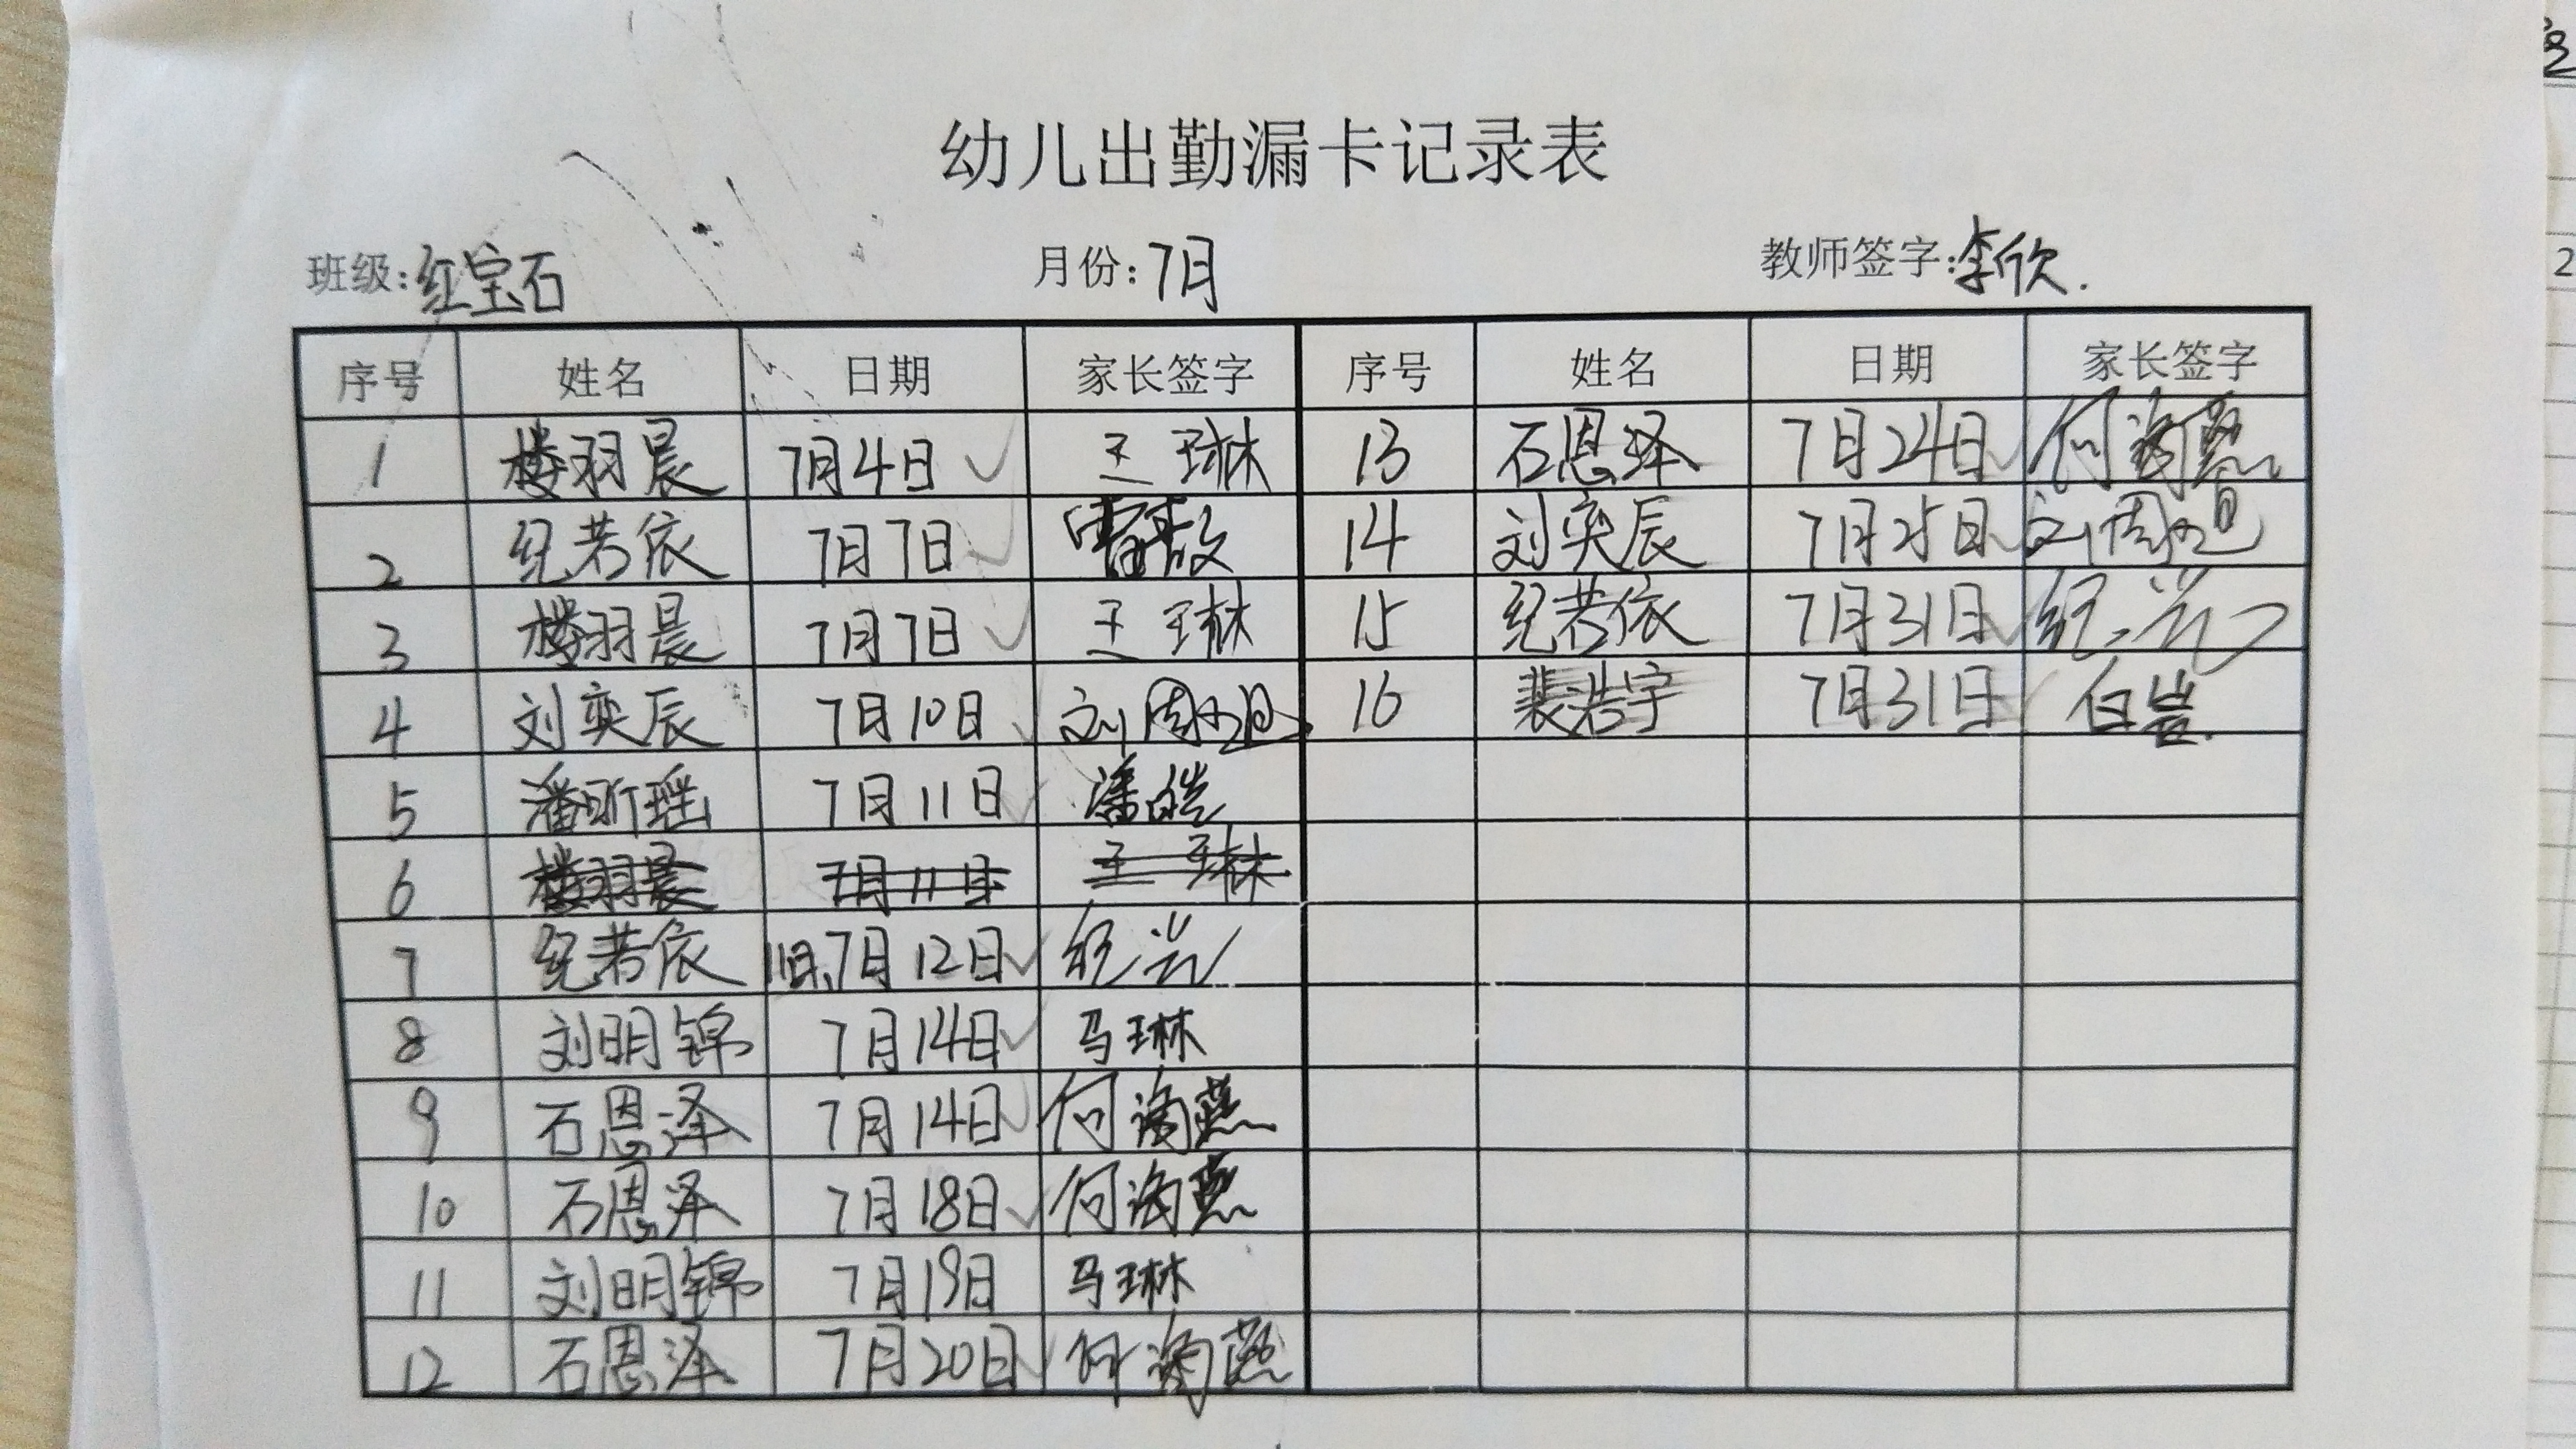 幼儿出勤漏卡记录表
班级:红宝石 月份:7月 教师签字:李欣.
序号 姓名 日期 家长签字 序号 姓名 日期 家长签字
1 楼羽晨 7月4日 ✓ 王琳 13 石恩泽 7月24日 ✓ 何海燕
2 纪若依 7月7日 ✓ 14 刘奕辰 7月25日 ✓
3 楼羽晨 7月7日 ✓ 王琳 15 纪若依 7月31日 ✓ 纪兴
4 刘奕辰 7月10日 ✓ 16 裴浩宇 7月31日 ✓ 白岩.
5 潘昕瑶 7月11日 ✓ 潘皓
6 楼羽晨 7月11日 王琳
7 纪若依 11日,7月12日 ✓ 纪兴
8 刘明锦 7月14日 ✓ 马琳
9 石恩泽 7月14日 ✓ 何海燕
10 石恩泽 7月18日 ✓ 何海燕
11 刘明锦 7月19日 马琳
12 石恩泽 7月20日 ✓ 何海燕